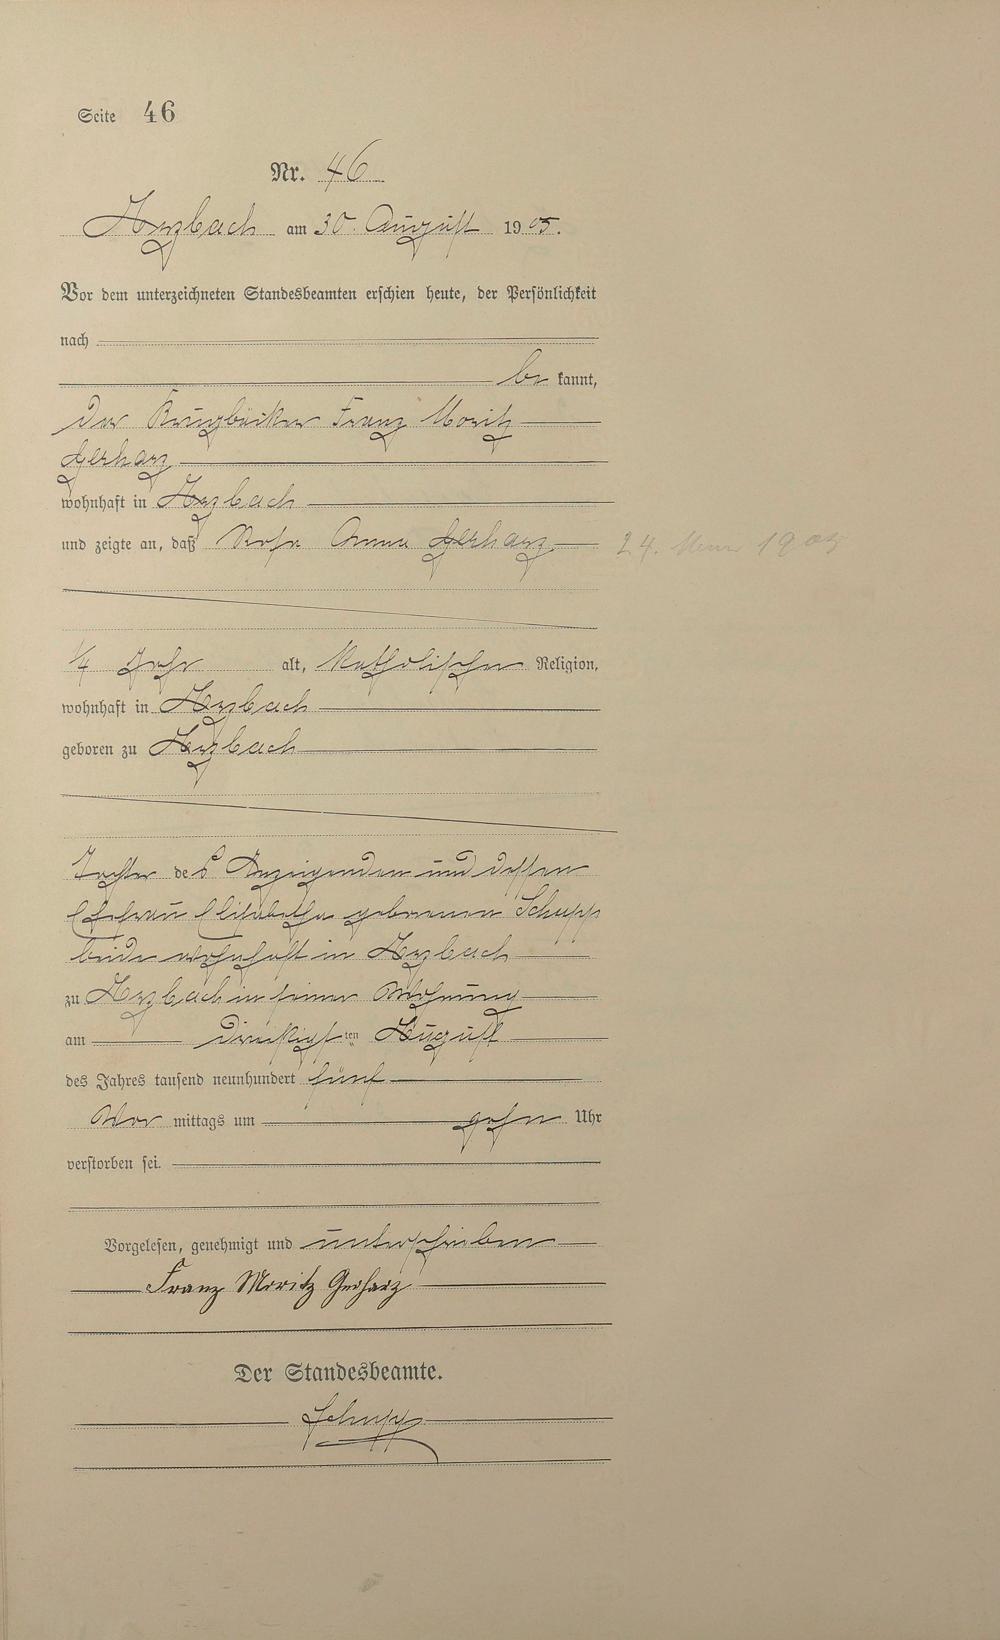 Seite 46
Nr. 46
Arzbach am 30. August 1905.
Vor dem unterzeichneten Standesbeamten erschien heute, der Persönlichkeit
nach
be kannt,
der Krugbäcker Franz Moritz
Gerharz
wohnhaft in Arzbach
und zeigte an, daß Rosa Anna Gerharz
24. 1905
1/4 Jahr alt, katholischer Religion,
wohnhaft in Arzbach
geboren zu Arzbach
Tochter des Anzeigenden und dessen
Ehefrau Elisabetha geborenen Schupp
beide wohnhaft in Arzbach
zu Arzbach in seiner Wohnung
am dreißigsten August
des Jahres tausend neunhundert fünf
Vor mittags um zehn Uhr
verstorben sei.
Vorgelesen, genehmigt und unterschrieben
Franz Moritz Gerharz
Der Standesbeamte.
Schupp